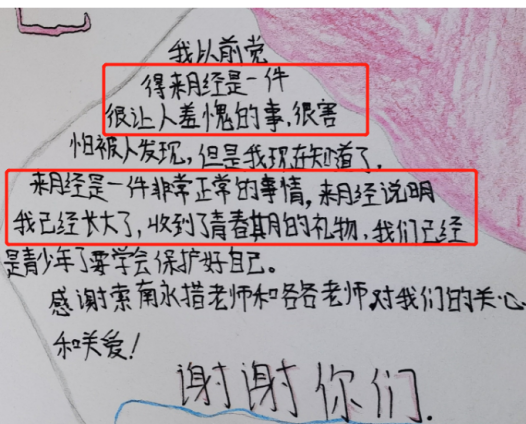 我以前觉
得来月经是一件
很让人羞愧的事,很害
怕被人发现,但是我现在知道了,
来月经是一件非常正常的事情,来月经说明
我已经长大了,收到了青春期的礼物,我们已经
是青少年了要学会保护好自己。
感谢索南永措老师和各各老师,对我们的关心
和关爱!
谢谢你们.